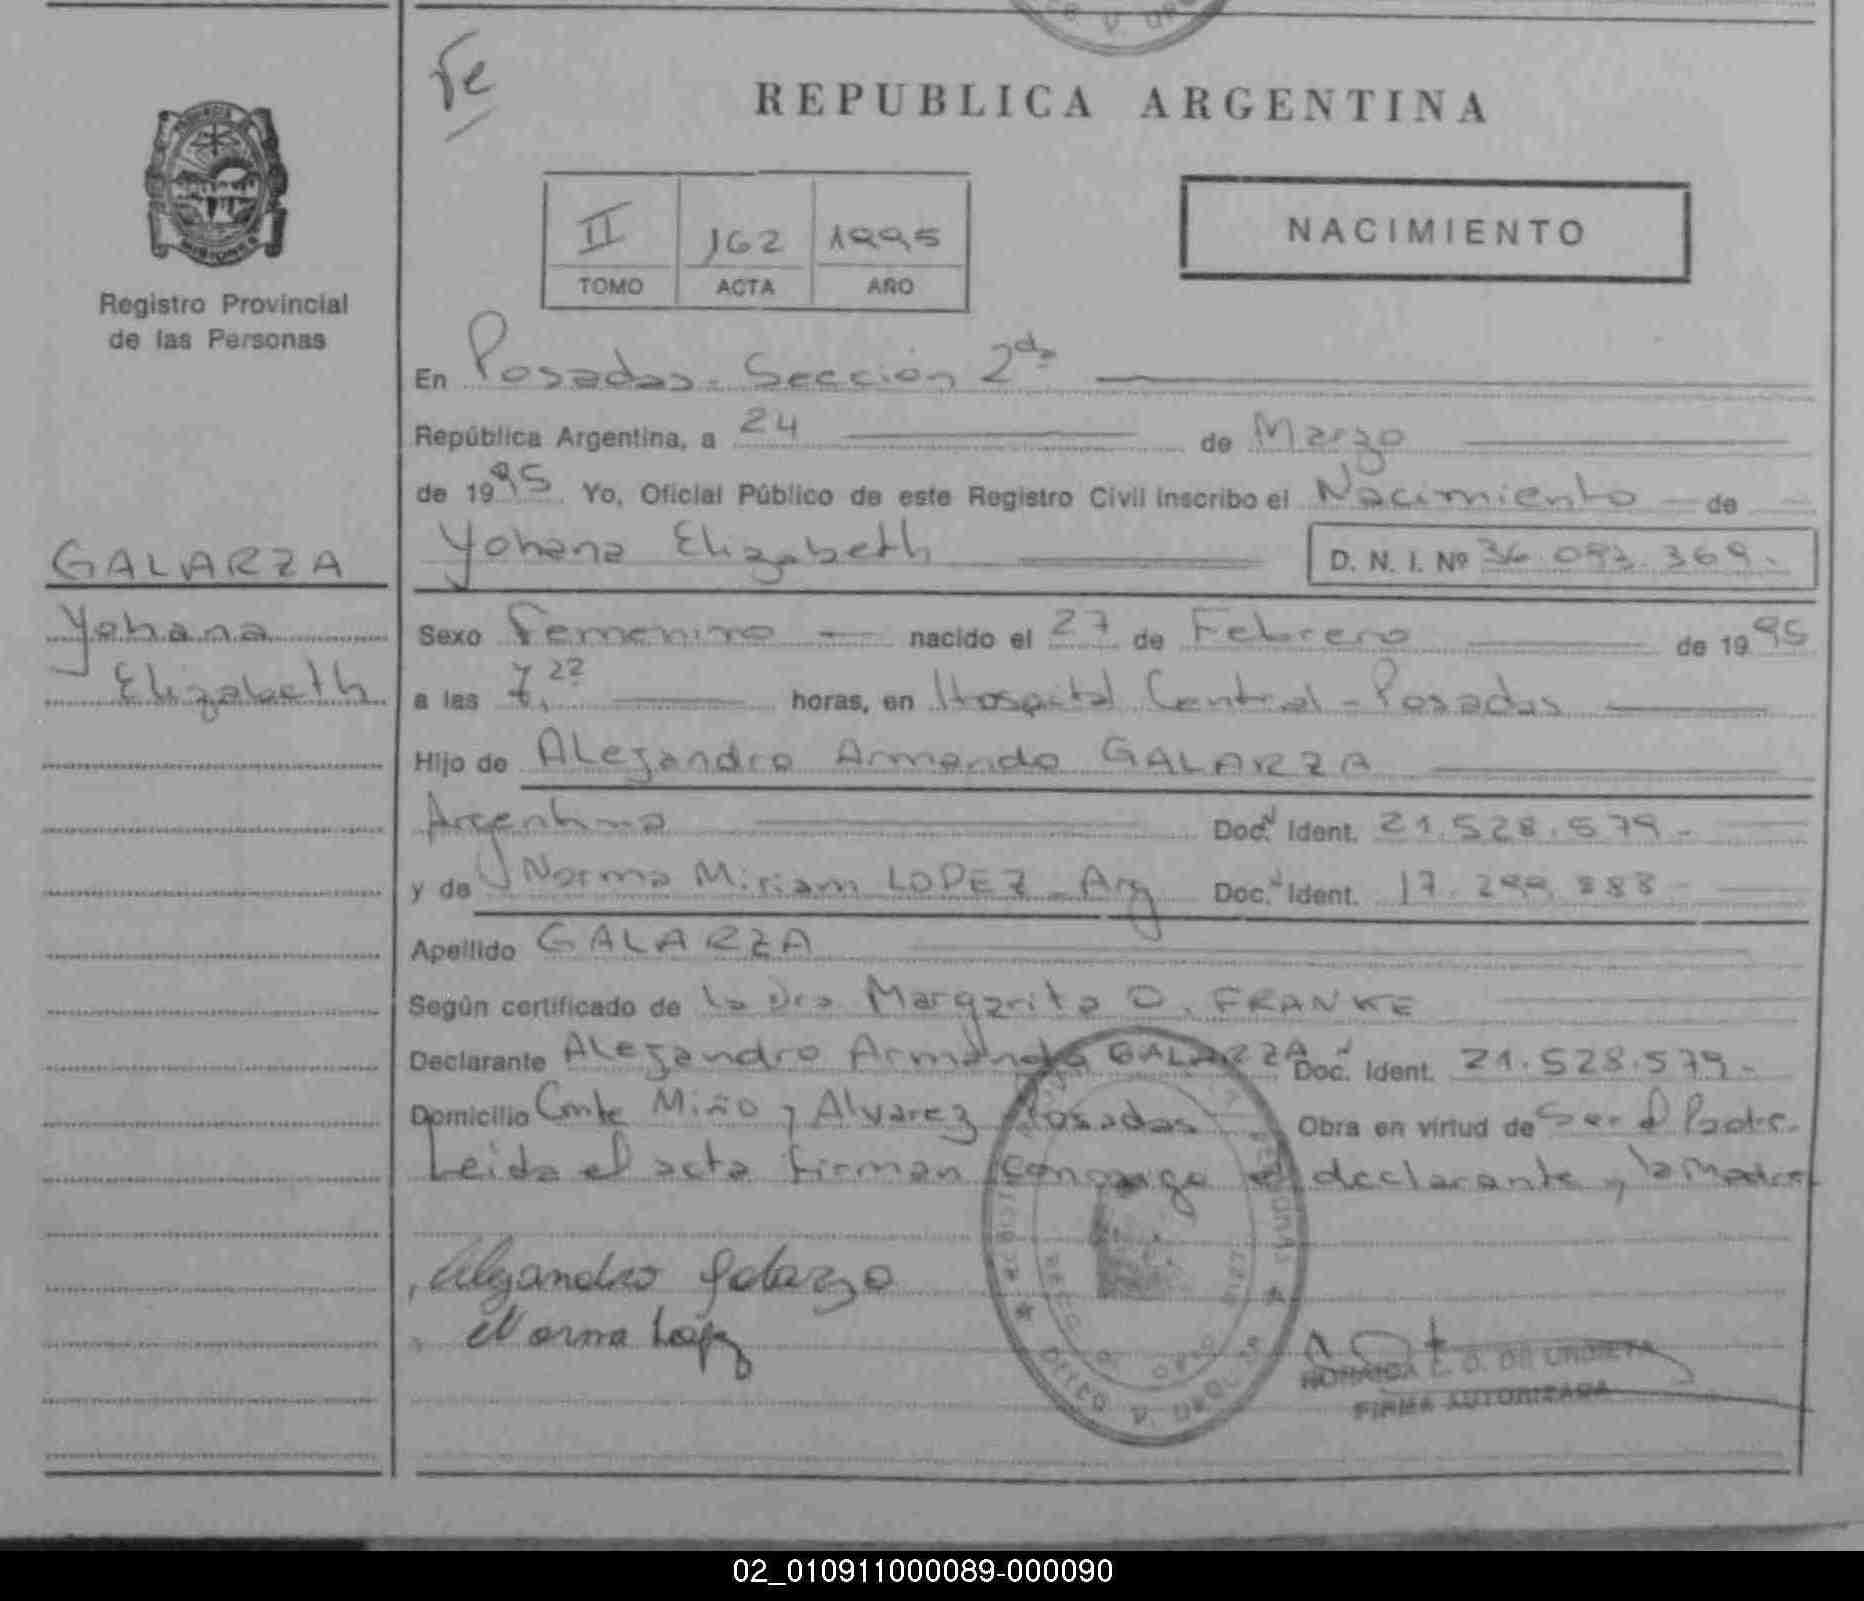 Fe
REPUBLICA ARGENTINA
II 162 1995
TOMO ACTA AÑO
NACIMIENTO
Registro Provincial
de las Personas
En Posadas - Sección 2da
República Argentina, a 24 de Marzo
de 1995 Yo, Oficial Público de este Registro Civil inscribo el Nacimiento de
Yohana Elizabeth D. N. I. Nº 36.093.369.-
GALARZA
Yohana
Elizabeth
Sexo Femenino nacido el 27 de Febrero de 1995
a las 7,22 horas, en Hospital Central - Posadas
Hijo de Alejandro Armando GALARZA
Argentina Doc. Ident. 21.528.579-
y de Norma Miriam LOPEZ - Arg Doc. Ident. 17.299.888-
Apellido GALARZA
Según certificado de la Dra Margarita O. FRANKE
Declarante Alejandro Armando GALARZA Doc. Ident. 21.528.579-
Domicilio Cmte Miño y Alvarez Posadas Obra en virtud de Ser el Padre.
Leida el acta firman conmigo el declarante y la Madre
Alejandro Galarza
Norma López
DE URDIETA
FIRMA AUTORIZADA
02_010911000089-000090